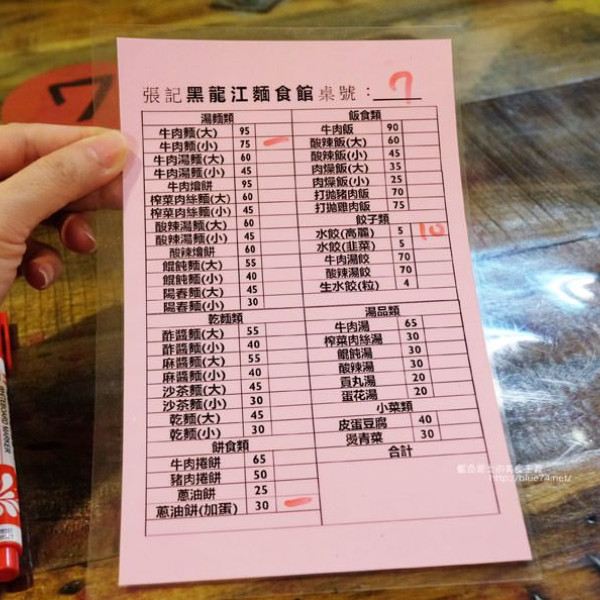 7
張記黑龍江麵食館 桌號：7
湯麵類
牛肉麵(大) 95
牛肉麵(小) 75 一
牛肉湯麵(大) 60
牛肉湯麵(小) 45
牛肉燴餅 95
榨菜肉絲麵(大) 60
榨菜肉絲麵(小) 45
酸辣湯麵(大) 60
酸辣湯麵(小) 45
酸辣燴餅 60
餛飩麵(大) 55
餛飩麵(小) 40
陽春麵(大) 45
陽春麵(小) 30
乾麵類
酢醬麵(大) 55
酢醬麵(小) 40
麻醬麵(大) 55
麻醬麵(小) 40
沙茶麵(大) 45
沙茶麵(小) 30
乾麵(大) 45
乾麵(小) 30
餅食類
牛肉捲餅 65
豬肉捲餅 50
蔥油餅 25
蔥油餅(加蛋) 30 一
飯食類
牛肉飯 90
酸辣飯(大) 60
酸辣飯(小) 45
肉燥飯(大) 35
肉燥飯(小) 25
打拋豬肉飯 70
打拋雞肉飯 75
餃子類
水餃(高麗) 5 10
水餃(韭菜) 5
牛肉湯餃 70
酸辣湯餃 70
生水餃(粒) 4
湯品類
牛肉湯 65
榨菜肉絲湯 30
餛飩湯 30
酸辣湯 30
貢丸湯 20
蛋花湯 20
小菜類
皮蛋豆腐 40
燙青菜 30
合計
http://blue74.net/
WHITEBOARD MARKER